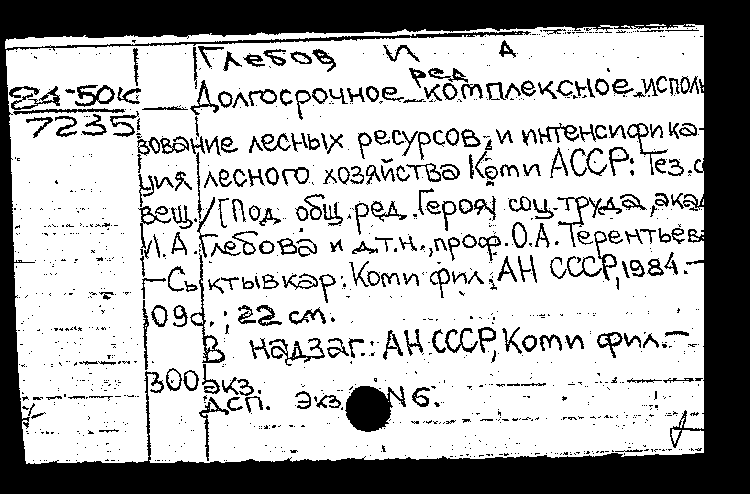 Глебов И А
ред
84-50к
7235
Долгосрочное комплексное исполь
зование лесных ресурсов, и интенсифика-
ция лесного хозяйства Коми АССР: Тез. с
вещ. / [Под общ. ред. Героя соц. труда, акад
И.А. Глебова и д.т.н., проф. О.А. Терентьева
- Сыктывкар: Коми фил. АН СССР, 1984. -
109с. ; 22 см.
В надзаг.: АН СССР, Коми фил. -
300 экз.
ДСП. Экз N6.